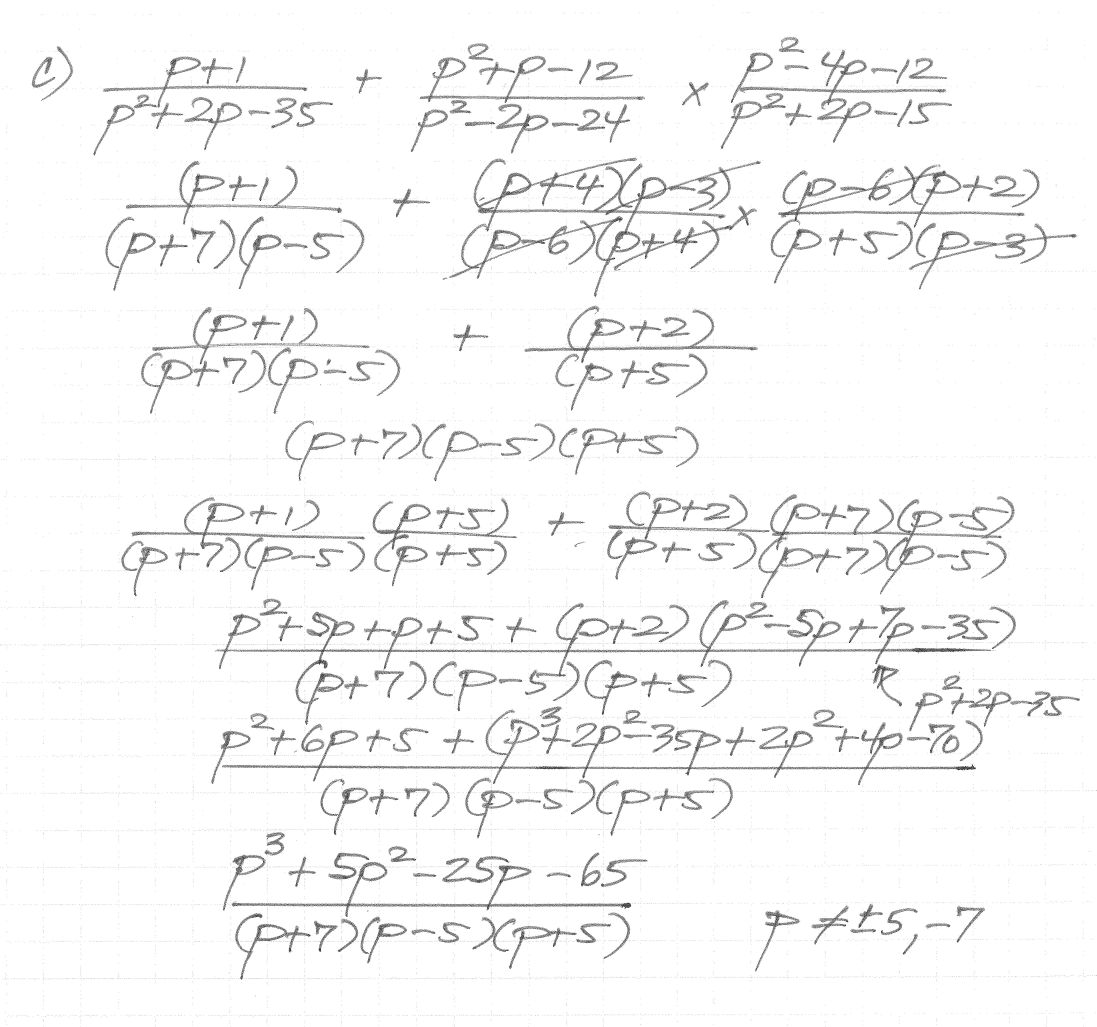 c) (p+1)/(p²+2p-35) + (p²+p-12)/(p²-2p-24) × (p²-4p-12)/(p²+2p-15)
(p+1)/((p+7)(p-5)) + ((p+4)(p-3))/((p-6)(p+4)) × ((p-6)(p+2))/((p+5)(p-3))
(p+1)/((p+7)(p-5)) + (p+2)/(p+5)
(p+7)(p-5)(p+5)
(p+1)/((p+7)(p-5)) (p+5)/(p+5) + (p+2)/(p+5) ((p+7)(p-5))/((p+7)(p-5))
(p²+5p+p+5 + (p+2)(p²-5p+7p-35))/((p+7)(p-5)(p+5))
↖ p²+2p-35
(p²+6p+5 + (p³+2p²-35p+2p²+4p-70))/((p+7)(p-5)(p+5))
(p³+5p²-25p-65)/((p+7)(p-5)(p+5)) p ≠ ±5, -7